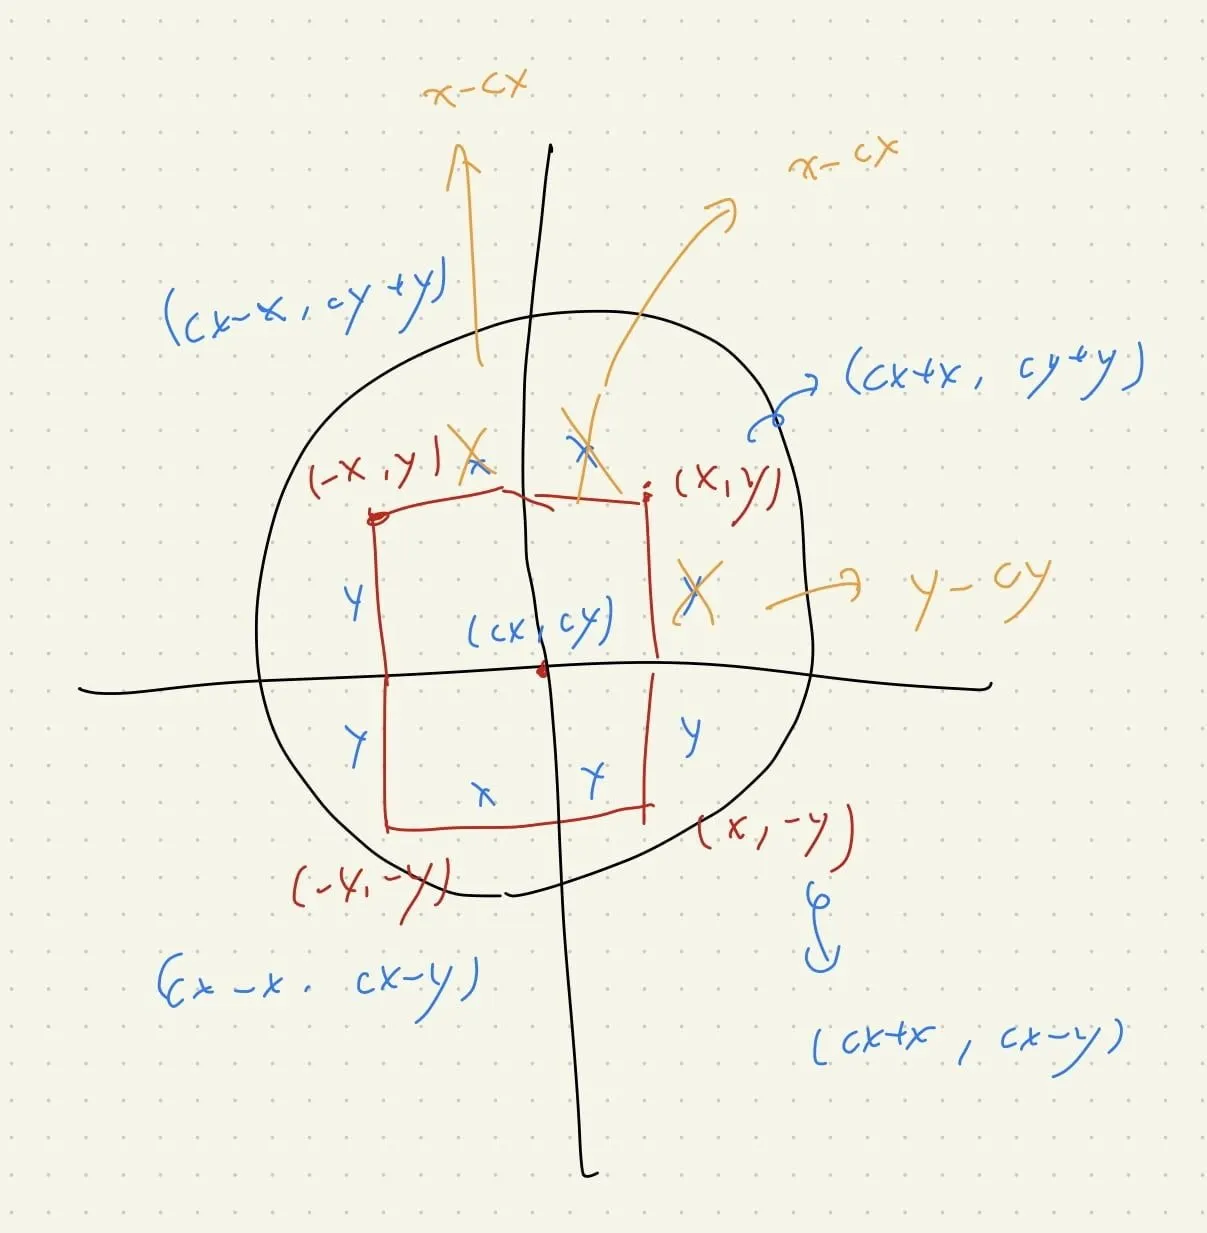 x-cx
x-cx
(cx-x, cy+y)
(cx+x, cy+y)
(-x,y)
x
x
(x,y)
y
y
y-cy
(cx, cy)
y
y
x
x
(x,-y)
(-x,-y)
(cx-x. cx-y)
(cx+x, cx-y)